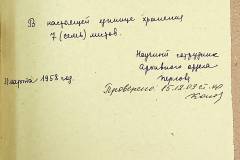 В настоящей единице хранения
7 (семь) листов.
Научный сотрудник
архивного отдела
11 марта 1958 год.
Проверено 15.12.03